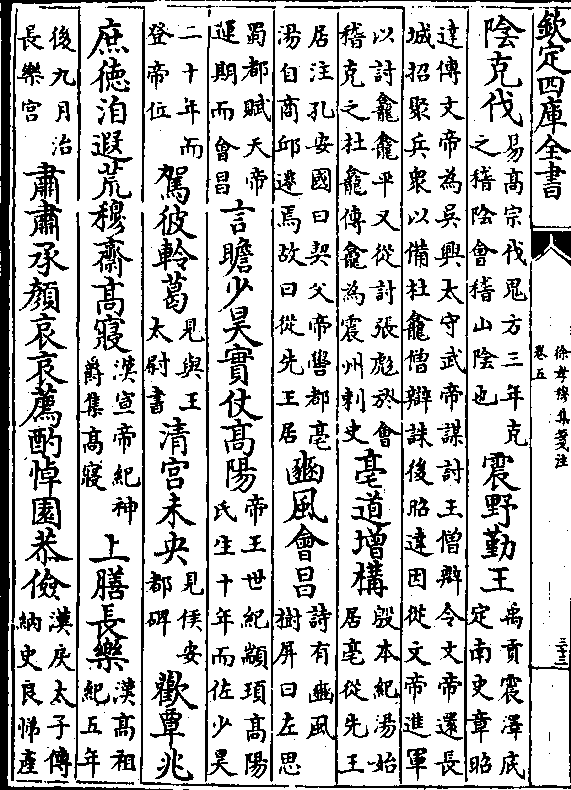 欽定四庫全書
徐孝穆集箋注
卷五
三十三
陰克伐易高宗伐鬼方三年克之稽陰會稽山陰也震野勤王禹貢震澤底定南史章昭
達傳文帝為吳興太守武帝謀討王僧辯令文帝還長城招聚兵衆以備杜龕僧辯誅後昭達因從文帝進軍
以討龕龕平又從討張彪於會稽克之杜龕傳龕為震州刺史亳道增構殷本紀湯始居亳從先王
居注孔安國曰契父帝嚳都亳湯自商邱遷焉故曰從先王居豳風會昌詩有豳風樹屏曰左思
蜀都賦天帝運期而會昌言瞻少昊實仗高陽帝王世紀顓頊高陽氏生十年而佐少昊
二十年而登帝位駕彼軨葛見與王太尉書清宮未央見侯安都碑歡覃兆
庶徳洎遐荒穆齋高寢漢宣帝紀神爵集高寢上膳長樂漢高祖紀五年
後九月治長樂宮肅肅承顏哀哀薦酌悼園恭儉漢戾太子傳納史良悌產